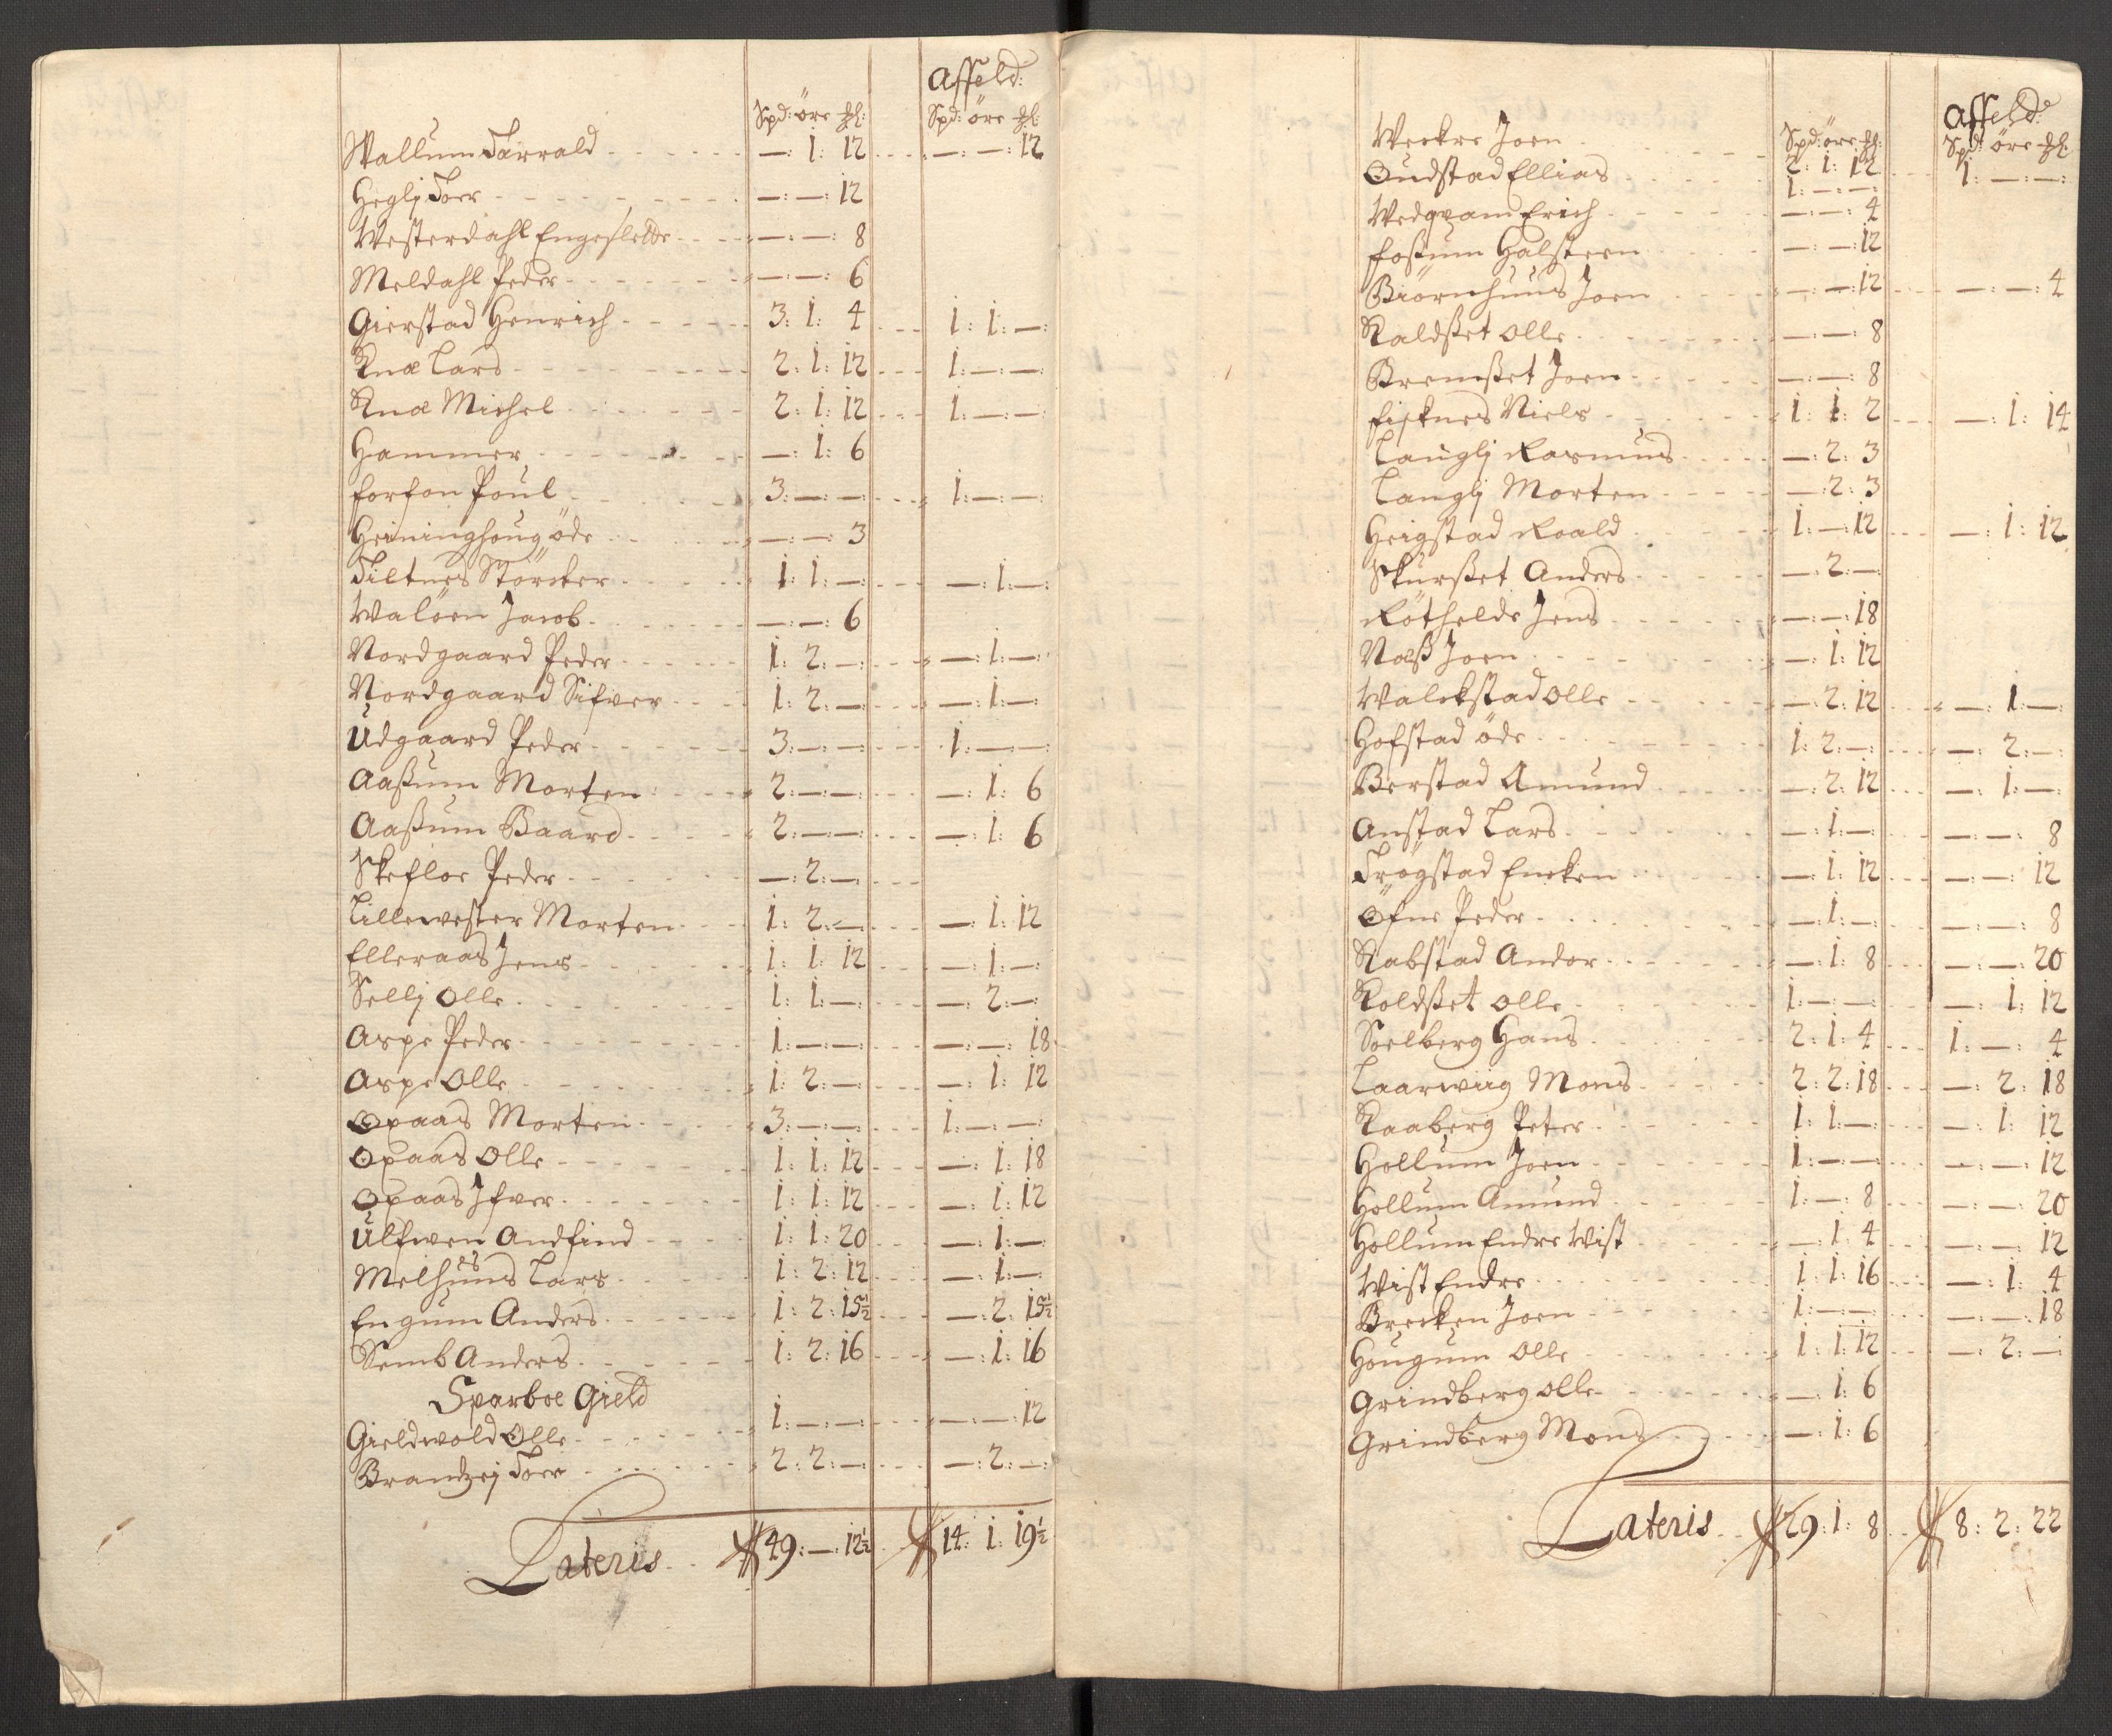 Affeld:
Spd: öre ₰: Spd: öre ₰:
Wallum Tarrald — : 1 : 12 — : — : 12
Heglj Toer — : — : 12
Westerdahl Engesletde — : — : 8
Meldahl Peder — : — : 6
Gierstad Henrich 3 : 1 : 4 1 : 1 : —
Knæ Lars 2 : 1 : 12 1 : — : —
Knæ Michel 2 : 1 : 12 1 : — : —
Hammer — : 1 : 6
forfon Poul 3 : — : — 1 : — : —
Heininghoug öde — : — : 3
Tiltnes Störcker 1 : 1 : — — : 1 : —
Walöen Jacob — : — : 6
Nordgaard Peder 1 : 2 : — — : 1 : —
Nordgaard Sifver 1 : 2 : — — : 1 : —
Udgaard Peder 3 : — : — 1 : — : —
Aaßum Morten 2 : — : — — : 1 : 6
Aaßum Baard 2 : — : — — : 1 : 6
Skefloe Peder — : 2 : —
Lillewester Morten 1 : 2 : — — : 1 : 12
Elleraas Jens 1 : 1 : 12 — : 1 : —
Sellj Olle 1 : 1 : — — : 2 : —
Aspe Peder 1 : — : — — : — : 18
Aspe Olle 1 : 2 : — — : 1 : 12
Opaas Morten 3 : — : — 1 : — : —
Opaas Olle 1 : 1 : 12 — : 1 : 18
Opaas Ifver 1 : 1 : 12 — : 1 : 12
Ulfwen Andfind 1 : 1 : 20 — : 1 : —
Melhuus Lars 1 : 2 : 12 — : 1 : —
Engum Anders 1 : 2 : 15½ — : 2 : 15½
Semb Anders 1 : 2 : 16 — : 1 : 16
Sparboe Gield
Gieldwold Olle 1 : — : — — : — : 12
Brandzej Toer 2 : 2 : — — : 2 : —
Lateris 49 : — : 12½ 14 : 1 : 19½
Affeld:
Spd: öre ₰: Spd: öre ₰:
Weekre Joen 2 : 1 : 12 1 : — : —
Oudstad Ellias 1 : — : —
Wedqvam Erich — : — : 4
foßum Halsteen — : — : 12
Biörnhuus Joen — : — : 12 — : — : 4
Kaldßet Olle — : — : 8
Bremßet Joen — : — : 8
fisknes Niels 1 : 1 : 2 — : 1 : 14
Langlj Rasmus — : 2 : 3
Langlj Morten — : 2 : 3
Heigstad Roald 1 : — : 12 — : 1 : 12
Skurßet Anders — : 2 : —
Röthelde Jens — : — : 18
Næß Joen — : 1 : 12
Walekstad Olle — : 2 : 12 — : 1 : —
Hofstad öde 1 : 2 : — — : 2 : —
Berstad Amund — : 2 : 12 — : 1 : —
Anstad Lars — : 1 : — — : — : 8
Trögstad Encken — : 1 : 12 — : — : 12
Öfne Peder — : 1 : — — : — : 8
Rabstad Andor — : 1 : 8 — : — : 20
Koldßet Olle 1 : — : — — : 1 : 12
Soelberg Hans 2 : 1 : 4 1 : — : 4
Laarwiig Mons 2 : 2 : 18 — : 2 : 18
Raaberg Peter 1 : 1 : — — : 1 : 12
Hollum Joen 1 : — : — — : — : 12
Hollum Amund 1 : — : 8 — : — : 20
Hollum Endre Wist — : 1 : 4 — : — : 12
Wist Endre 1 : 1 : 16 — : 1 : 4
Brecken Joen 1 : — : — — : — : 18
Hougum Olle 1 : 1 : 12 — : 2 : —
Grindberg Olle — : 1 : 6
Grindberg Mons — : 1 : 6
Lateris 29 : 1 : 8 8 : 2 : 22